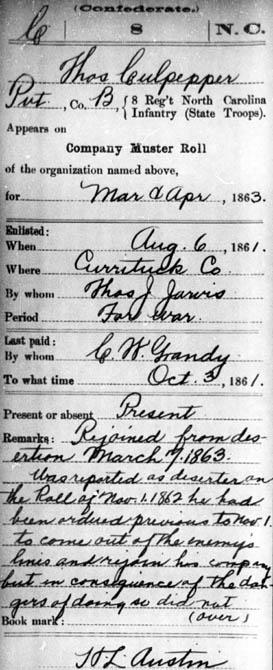 (Confederate.)
C 8 N.C.
Thos Culpepper
Pvt, Co. B, { 8 Reg't North Carolina
Infantry (State Troops).
Appears on
Company Muster Roll
of the organization named above,
for Mar & Apr, 1863.
Enlisted:
When Aug. 6, 1861.
Where Currituck Co.
By whom Thos J. Jarvis
Period For war.
Last paid:
By whom C. W. Grandy
To what time Oct. 3, 1861.
Present or absent Present
Remarks: Rejoined from des-
ertion March 7. 1863.
Was reported as deserter on
the Roll of Nov. 1. 1862 he had
been ordered previous to Nov. 1
to come out of the enemy's
lines and rejoin his company
but in consequence of the dan-
gers of doing so did not
Book mark: (over)
H L Austin